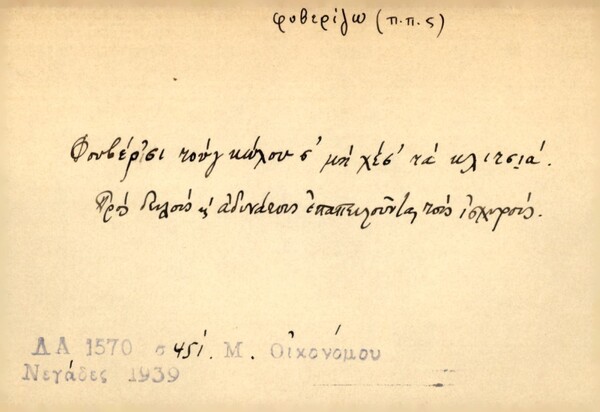 φοβερίζω (π.π.ς)
Φουβέρ'σι τοὺγ κώλου σ' μὴ χέσ' τὰ κλιτσιά.
Πρὸς δειλοὺς κ' ἀδυνάτους ἐπαπειλοῦντας τοὺς ἰσχυρούς.
ΛΑ 1570 σ 451. Μ. Οἰκονόμου
Νεγάδες 1939